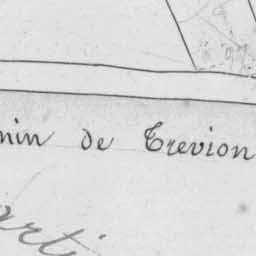 nin de Trevion
arti